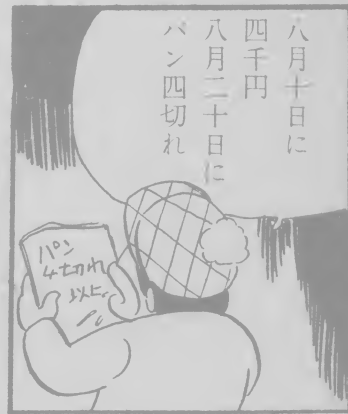 八月十日に
四千円
八月二十日に
パン四切れ
パン
4切れ
以上